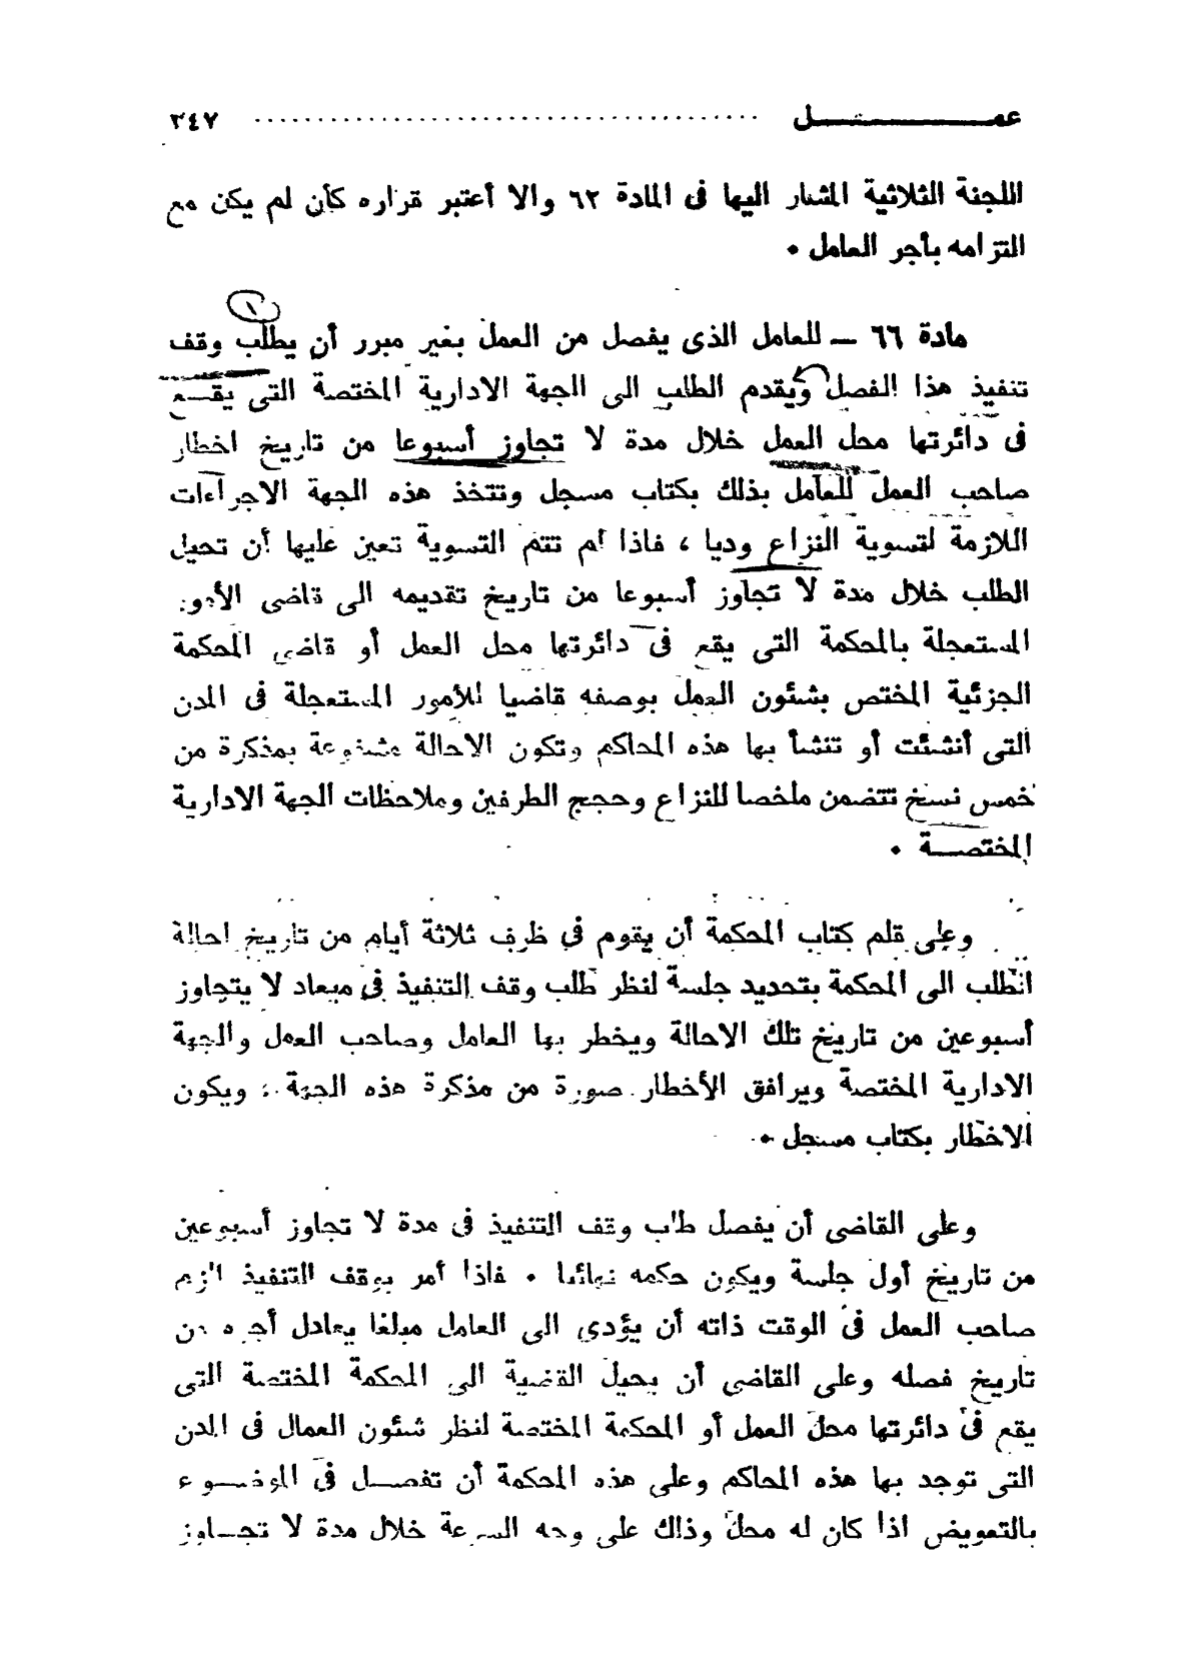 عمـــل ........................................ ٣٤٧
اللجنة الثلاثية المشار اليها فى المادة ٦٢ والا أعتبر قراره كأن لم يكن مع
التزامه بأجر العامل •
١
مادة ٦٦ — للعامل الذى يفصل من العمل بغير مبرر أن يطلب وقف
تنفيذ هذا الفصل ويقدم الطلب الى الجهة الادارية المختصة التى يقـع
فى دائرتها محل العمل خلال مدة لا تجاوز أسبوعا من تاريخ اخطار
صاحب العمل للعامل بذلك بكتاب مسجل وتتخذ هذه الجهة الاجراءات
اللازمة لتسوية النزاع وديا ، فاذا لم تتم التسوية تعين عليها أن تحيل
الطلب خلال مدة لا تجاوز أسبوعا من تاريخ تقديمه الى قاضى الأمور
المستعجلة بالمحكمة التى يقع فى دائرتها محل العمل أو قاضى المحكمة
الجزئية المختص بشئون العمل بوصفه قاضيا للأمور المستعجلة فى المدن
التى أنشئت أو تنشأ بها هذه المحاكم وتكون الاحالة مشفوعة بمذكرة من
خمس نسخ تتضمن ملخصا للنزاع وحجج الطرفين وملاحظات الجهة الادارية
المختصــة •
وعلى قلم كتاب المحكمة أن يقوم فى ظرف ثلاثة أيام من تاريخ احالة
الطلب الى المحكمة بتحديد جلسة لنظر طلب وقف التنفيذ فى ميعاد لا يتجاوز
أسبوعين من تاريخ تلك الاحالة ويخطر بها العامل وصاحب العمل والجهة
الادارية المختصة ويرافق الأخطار صورة من مذكرة هذه الجهة ؛ ويكون
الاخطار بكتاب مسجل •
وعلى القاضى أن يفصل طلب وقف التنفيذ فى مدة لا تجاوز أسبوعين
من تاريخ أول جلسة ويكون حكمه نهائيا • فاذا أمر بوقف التنفيذ الزم
صاحب العمل فى الوقت ذاته أن يؤدى الى العامل مبلغا يعادل أجره من
تاريخ فصله وعلى القاضى أن يحيل القضية الى المحكمة المختصة التى
يقع فى دائرتها محل العمل أو المحكمة المختصة لنظر شئون العمال فى المدن
التى توجد بها هذه المحاكم وعلى هذه المحكمة أن تفصــل فى الموضــوع
بالتعويض اذا كان له محل وذلك على وجه السرعة خلال مدة لا تجــاوز